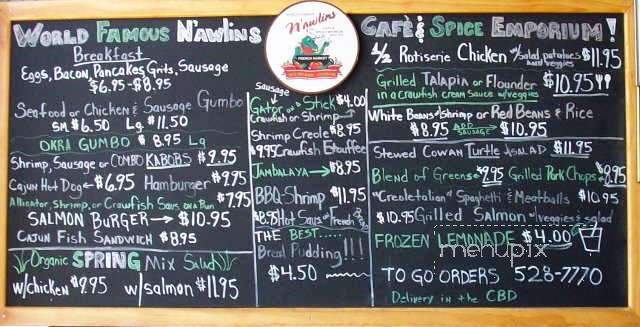 World Famous N'awlins
Café & Spice Emporium!
N'awlins
Breakfast
Eggs, Bacon, Pancakes, Grits, Sausage
$6.95-$8.95
Seafood or Chicken & Sausage Gumbo
SM $6.50 Lg. $11.50
OKRA GUMBO $8.95 Lg
Shrimp, Sausage or COMBO KABOBS $9.95
Cajun Hot Dog $6.95 Hamburger $9.95
Alligator, Shrimp, or Crawfish Saus. on a Bun $7.95
SALMON BURGER → $10.95
CAJUN Fish SANDWICH $8.95
Organic SPRING Mix Salad
w/chicken $9.95 w/salmon $11.95
Sausage
Gator on a Stick $4.00
Crawfish or Shrimp
Shrimp Creole $8.95
$9.95 Crawfish Etouffee
JAMBALAYA → $8.95
BBQ-Shrimp $11.95
$8.95 Hot Saus. on French
THE BEST......
Bread Pudding!!!
$4.50
1/2 Rotiserie Chicken w/salad, potatoes $11.95
Grilled TALAPIA or Flounder $10.95
in a crawfish cream sauce w/veggies
White Beans & Shrimp or Red Beans & Rice
$8.95 ADD SAUSAGE → $10.95
STEWED COWAN TURTLE SALAD $11.95
Blend of Greens $9.95 Grilled Pork Chops $8.95
"Creoletalian" Spaghetti & Meatballs $10.95
$10.95 Grilled Salmon w/veggies & salad
FROZEN LEMONADE $4.00
menupix
TO GO ORDERS 528-7770
Delivery in the CBD